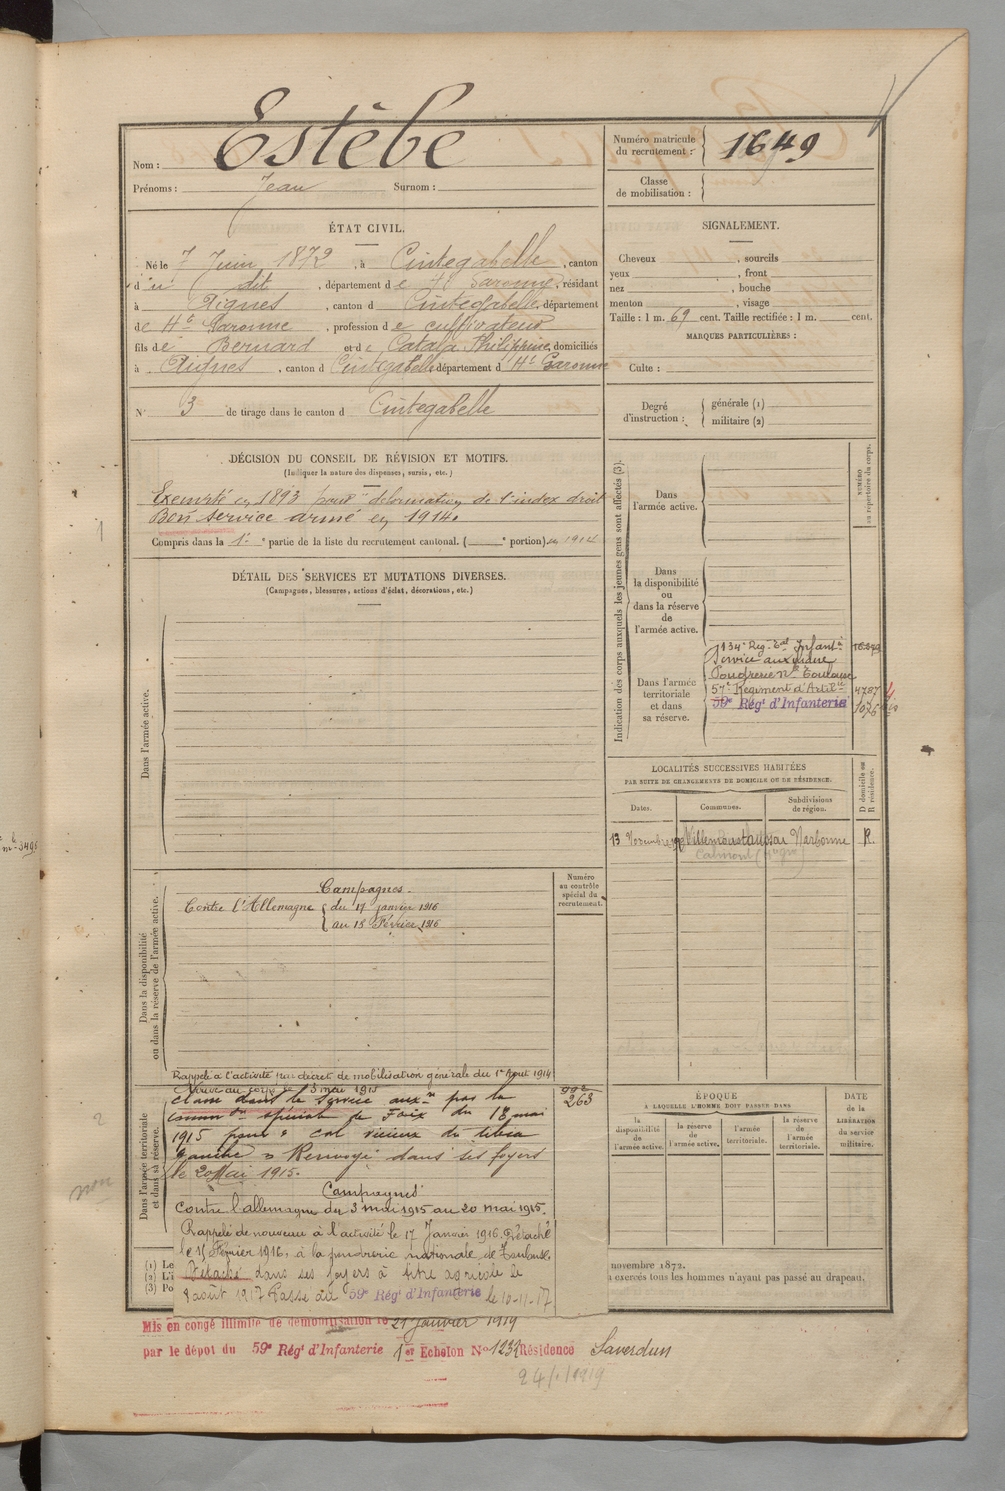 Nom : Estèbe
Prénoms : Jean Surnom :
Numéro matricule du recrutement : 1649
Classe de mobilisation :
ÉTAT CIVIL.
Né le 7 Juin 1872, à Cintegabelle, canton
d'u dit, département de Hte Garonne, résidant
à Aignes, canton d Cintegabelle, département
de Hte Garonne, profession de cultivateur
fils de Bernard et de Catala Philippine, domiciliés
à Aignes, canton d Cintegabelle département d Hte Garonne
N° 3 de tirage dans le canton d Cintegabelle
SIGNALEMENT.
Cheveux , sourcils
yeux , front
nez , bouche
menton , visage
Taille : 1 m. 69 cent. Taille rectifiée : 1 m. cent.
MARQUES PARTICULIÈRES :
Culte :
Degré d'instruction : générale (1)
militaire (2)
DÉCISION DU CONSEIL DE RÉVISION ET MOTIFS.
(Indiquer la nature des dispenses, sursis, etc.)
Exempté en 1893 pour "déformation de l'index droit
Bon service armé en 1914.
Compris dans la 1e partie de la liste du recrutement cantonal. ( e portion) en 1914
DÉTAIL DES SERVICES ET MUTATIONS DIVERSES.
(Campagnes, blessures, actions d'éclat, décorations, etc.)
Dans l'armée active.
Indication des corps auxquels les jeunes gens sont affectés (3).
NUMÉRO au répertoire du corps.
Dans l'armée active.
Dans la disponibilité ou dans la réserve de l'armée active.
Dans l'armée territoriale et dans sa réserve.
134e Reg. Eal Infantie
Service auxiliaire
Poudrerie Nle Toulouse
57e Régiment d'Artie 4787
59e Régt d'Infanterie 1076
LOCALITÉS SUCCESSIVES HABITÉES
PAR SUITE DE CHANGEMENTS DE DOMICILE OU DE RÉSIDENCE.
Dates. Communes. Subdivisions de région. D domicile ou R résidence.
13 Novembre Villemoustaussou Narbonne R.
Calmont
Dans la disponibilité ou dans la réserve de l'armée active.
Numéro au contrôle spécial du recrutement.
Campagnes.
Contre l'Allemagne du 17 janvier 1916
au 15 Février 1916
Rappelé à l'activité par décret de mobilisation générale du 1er Aout 1914
Arrivé au corps le 3 mai 1915
Dans l'armée territoriale et dans sa réserve.
992
263
Classé dans le service auxre par la
common spéciale de Foix du 18 mai
1915 pour "cal vicieux du tibia
gauche" Renvoyé dans ses foyers
le 20 Mai 1915.
Campagnes
Contre l'allemagne du 3 mai 1915 au 20 mai 1915.
Rappelé de nouveau à l'activité le 17 Janvier 1916. Détaché
le 15 Février 1916, à la poudrerie nationale de Toulouse.
Détaché dans ses foyers à titre agricole le
8 août 1917 Passé au 59e Régt d'Infanterie le 10-11-17
ÉPOQUE
À LAQUELLE L'HOMME DOIT PASSER DANS
la disponibilité de l'armée active.
la réserve de l'armée active.
l'armée territoriale.
la réserve de l'armée territoriale.
DATE de la LIBÉRATION du service militaire.
(1) Le
(2) L'i
(3) Po
novembre 1872.
exercés tous les hommes n'ayant pas passé au drapeau.
Mis en congé illimité de démobilisation le 21 Janvier 1919
par le dépot du 59e Régt d'Infanterie 1er Echelon No 1232 Résidence Saverdun
24/1/1919
non